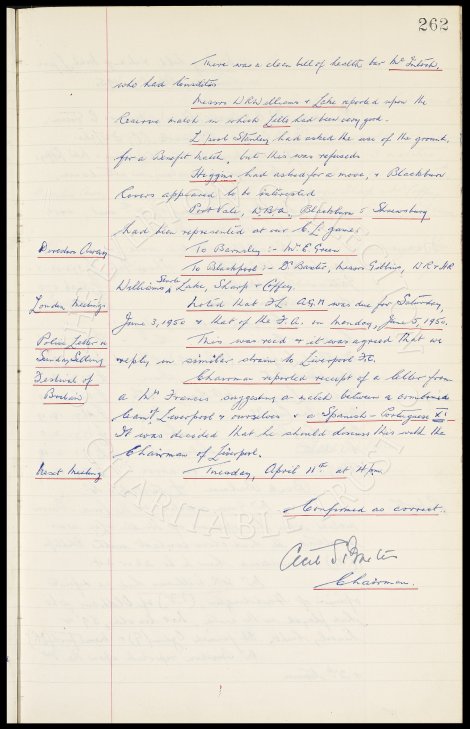 262
There was a clean bill of health bar McIntosh,
who had tonsilitis
Messrs W.R. Williams & Lake reported upon the
Reserve match in which Jells had been very good.
L'pool Stanley had asked the use of the ground,
for a Benefit Match, but this was refused
Higgins had asked for a move, & Blackburn
Rovers appeared to be interested
Port Vale, W.B.A, Blackburn & Shrewsbury
had been represented at our C.L. game.
Directors Away To Barnsley :- Mr. E. Green
To Blackpool :- Dr. Baxter, Messrs Gibbins, W.R & HR
Williams, Searle, Lake, Sharp & Coffey.
London Meetings Noted that F.L. A.G.M was due for Saturday,
June 3, 1950 & that of the F.A. on Monday, June 5, 1950.
Police Letter re This was read & it was agreed that we
Sunday Selling reply in similar strain to Liverpool F.C.
Festival of Chairman reported receipt of a letter from
Britain a Mr Francis suggesting a match between a combined
team of Liverpool & ourselves & a Spanish-Portuguese XI.
It was decided that he should discuss this with the
Chairman of Liverpool.
Next Meeting Tuesday, April 11th at 4pm
Confirmed as correct.
Cecil S. Baxter
Chairman.
EVERTON
CHARITABLE TRUST